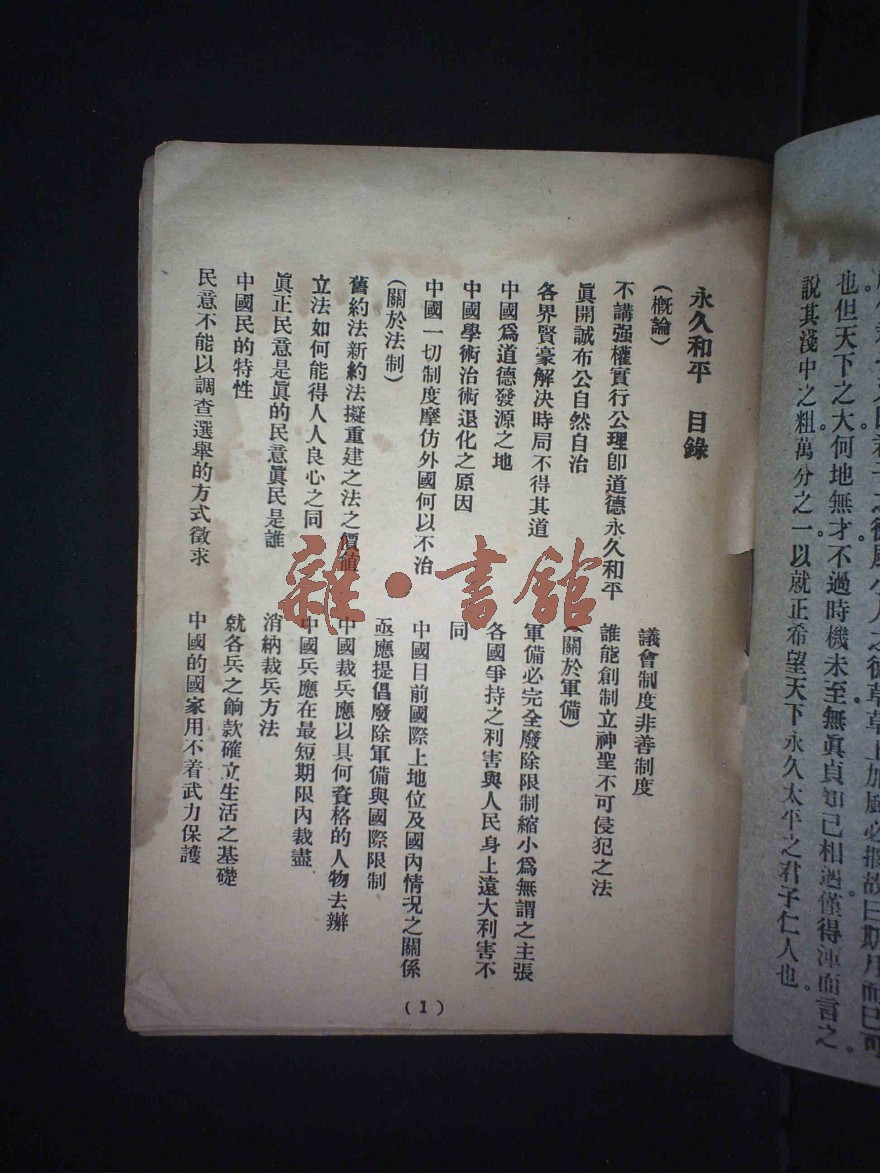 君子之德風小人之德草草上加風必
也但天下之大何地無才不過時機未至無眞貞知己相遇僅得渾而言之。
說其淺中之粗萬分之一以就正希望天下永久太平之君子仁人也。
永久和平 目錄
(概論)
不講强權實行公理卽道德永久和平
眞開誠布公自然自治
各界賢豪解決時局不得其道
中國爲道德發源之地
中國學術治術退化之原因
中國一切制度摩仿外國何以不治
(關於法制)
舊約法新約法擬重建之法之價値
立法如何能得人人良心之同
眞正民意是眞的民意眞民是誰
中國民的特性
民意不能以調查選舉的方式徵求
議會制度非善制度
誰能創制立神聖不可侵犯之法
(關於軍備)
軍備必完全廢除限制縮小爲無謂之主張
各國爭持之利害與人民身上遠大利害不
同
中國目前國際上地位及國內情况之關係
亟應提倡廢除軍備與國際限制
中國裁兵應以具何資格的人物去辦
中國兵應在最短期限內裁盡
消納裁兵方法
就各兵之餉款確立生活之基礎
中國的國家用不着武力保護
(1)
雜·書館